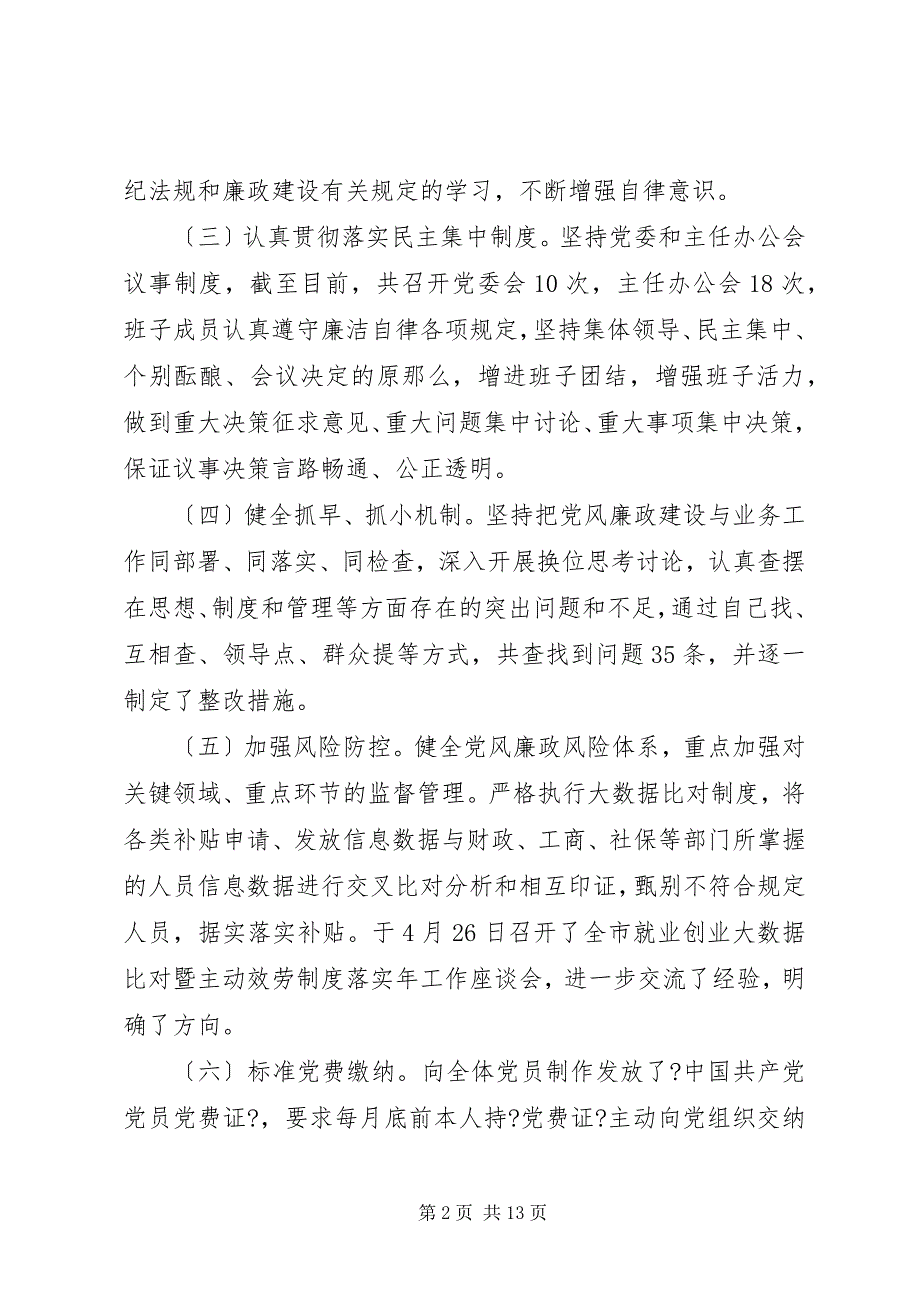 纪法规和廉政建设有关规定的学习，不断增强自律意识。
〔三〕认真贯彻落实民主集中制度。坚持党委和主任办公会
议事制度，截至目前，共召开党委会 10 次，主任办公会 18 次，
班子成员认真遵守廉洁自律各项规定，坚持集体领导、民主集中、
个别酝酿、会议决定的原那么，增进班子团结，增强班子活力，
做到重大决策征求意见、重大问题集中讨论、重大事项集中决策，
保证议事决策言路畅通、公正透明。
〔四〕健全抓早、抓小机制。坚持把党风廉政建设与业务工
作同部署、同落实、同检查，深入开展换位思考讨论，认真查摆
在思想、制度和管理等方面存在的突出问题和不足，通过自己找、
互相查、领导点、群众提等方式，共查找到问题 35 条，并逐一
制定了整改措施。
〔五〕加强风险防控。健全党风廉政风险体系，重点加强对
关键领域、重点环节的监督管理。严格执行大数据比对制度，将
各类补贴申请、发放信息数据与财政、工商、社保等部门所掌握
的人员信息数据进行交叉比对分析和相互印证，甄别不符合规定
人员，据实落实补贴。于 4 月 26 日召开了全市就业创业大数据
比对暨主动效劳制度落实年工作座谈会，进一步交流了经验，明
确了方向。
〔六〕标准党费缴纳。向全体党员制作发放了?中国共产党
党员党费证?，要求每月底前本人持?党费证?主动向党组织交纳
第 2 页 共 13 页